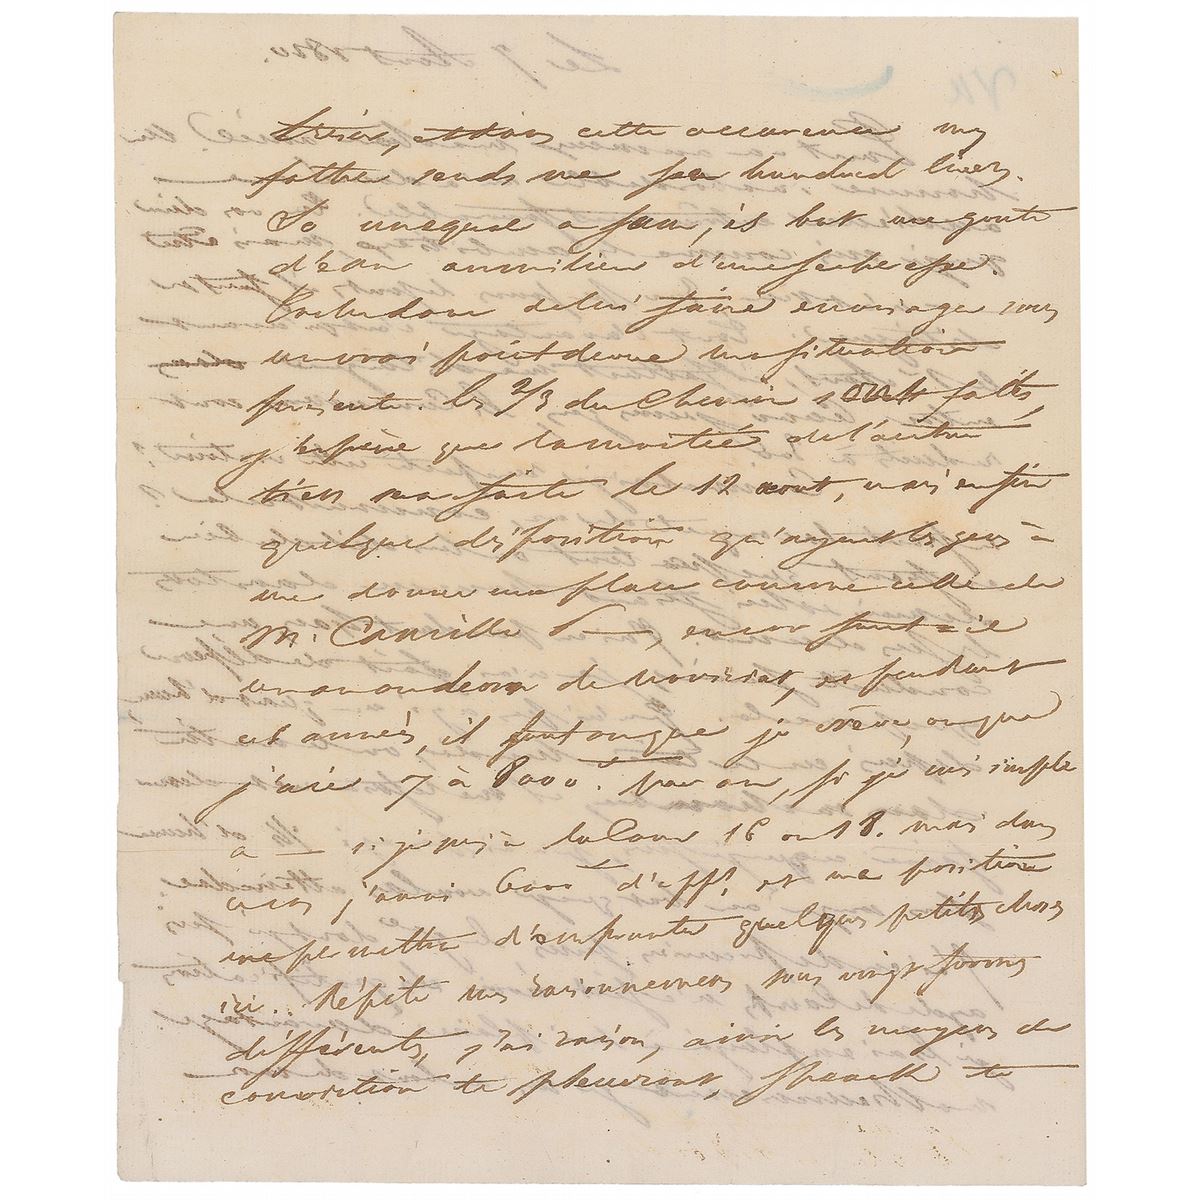 trésor, et dans cette occurence my
father sends me six hundred livers.
So unequal a sum, is but une goute
d'eau au milieu d'une sécheresse.
de lui faire envisager sous
un vrai point de vue ma situation
présente. les 2/3 du chemin sont faits,
j'espère que la moitié de l'autre
tiers sera faite le 12 aout, mais enfin
quelque disposition qu'ayent les gens à
me donner une place comme celle de
M. Camille T—, encor faut-il
un an ou deux de noviciat, et pendant
ces années, il faut ou que je crève, ou que
j'aie 7 à 8000 f par an, si je suis simple
a — si je suis à la Cour 16 ou 18. mais dans
ce cas j'aurai 6000 f d'app.ts et ma position
me permettra d'emprunter quelques petites choses
ici.. Répète mes raisonnemens sous vingt formes
différents, j'ai raison, ainsi les moyens de
conviction te pleuvront, speack to